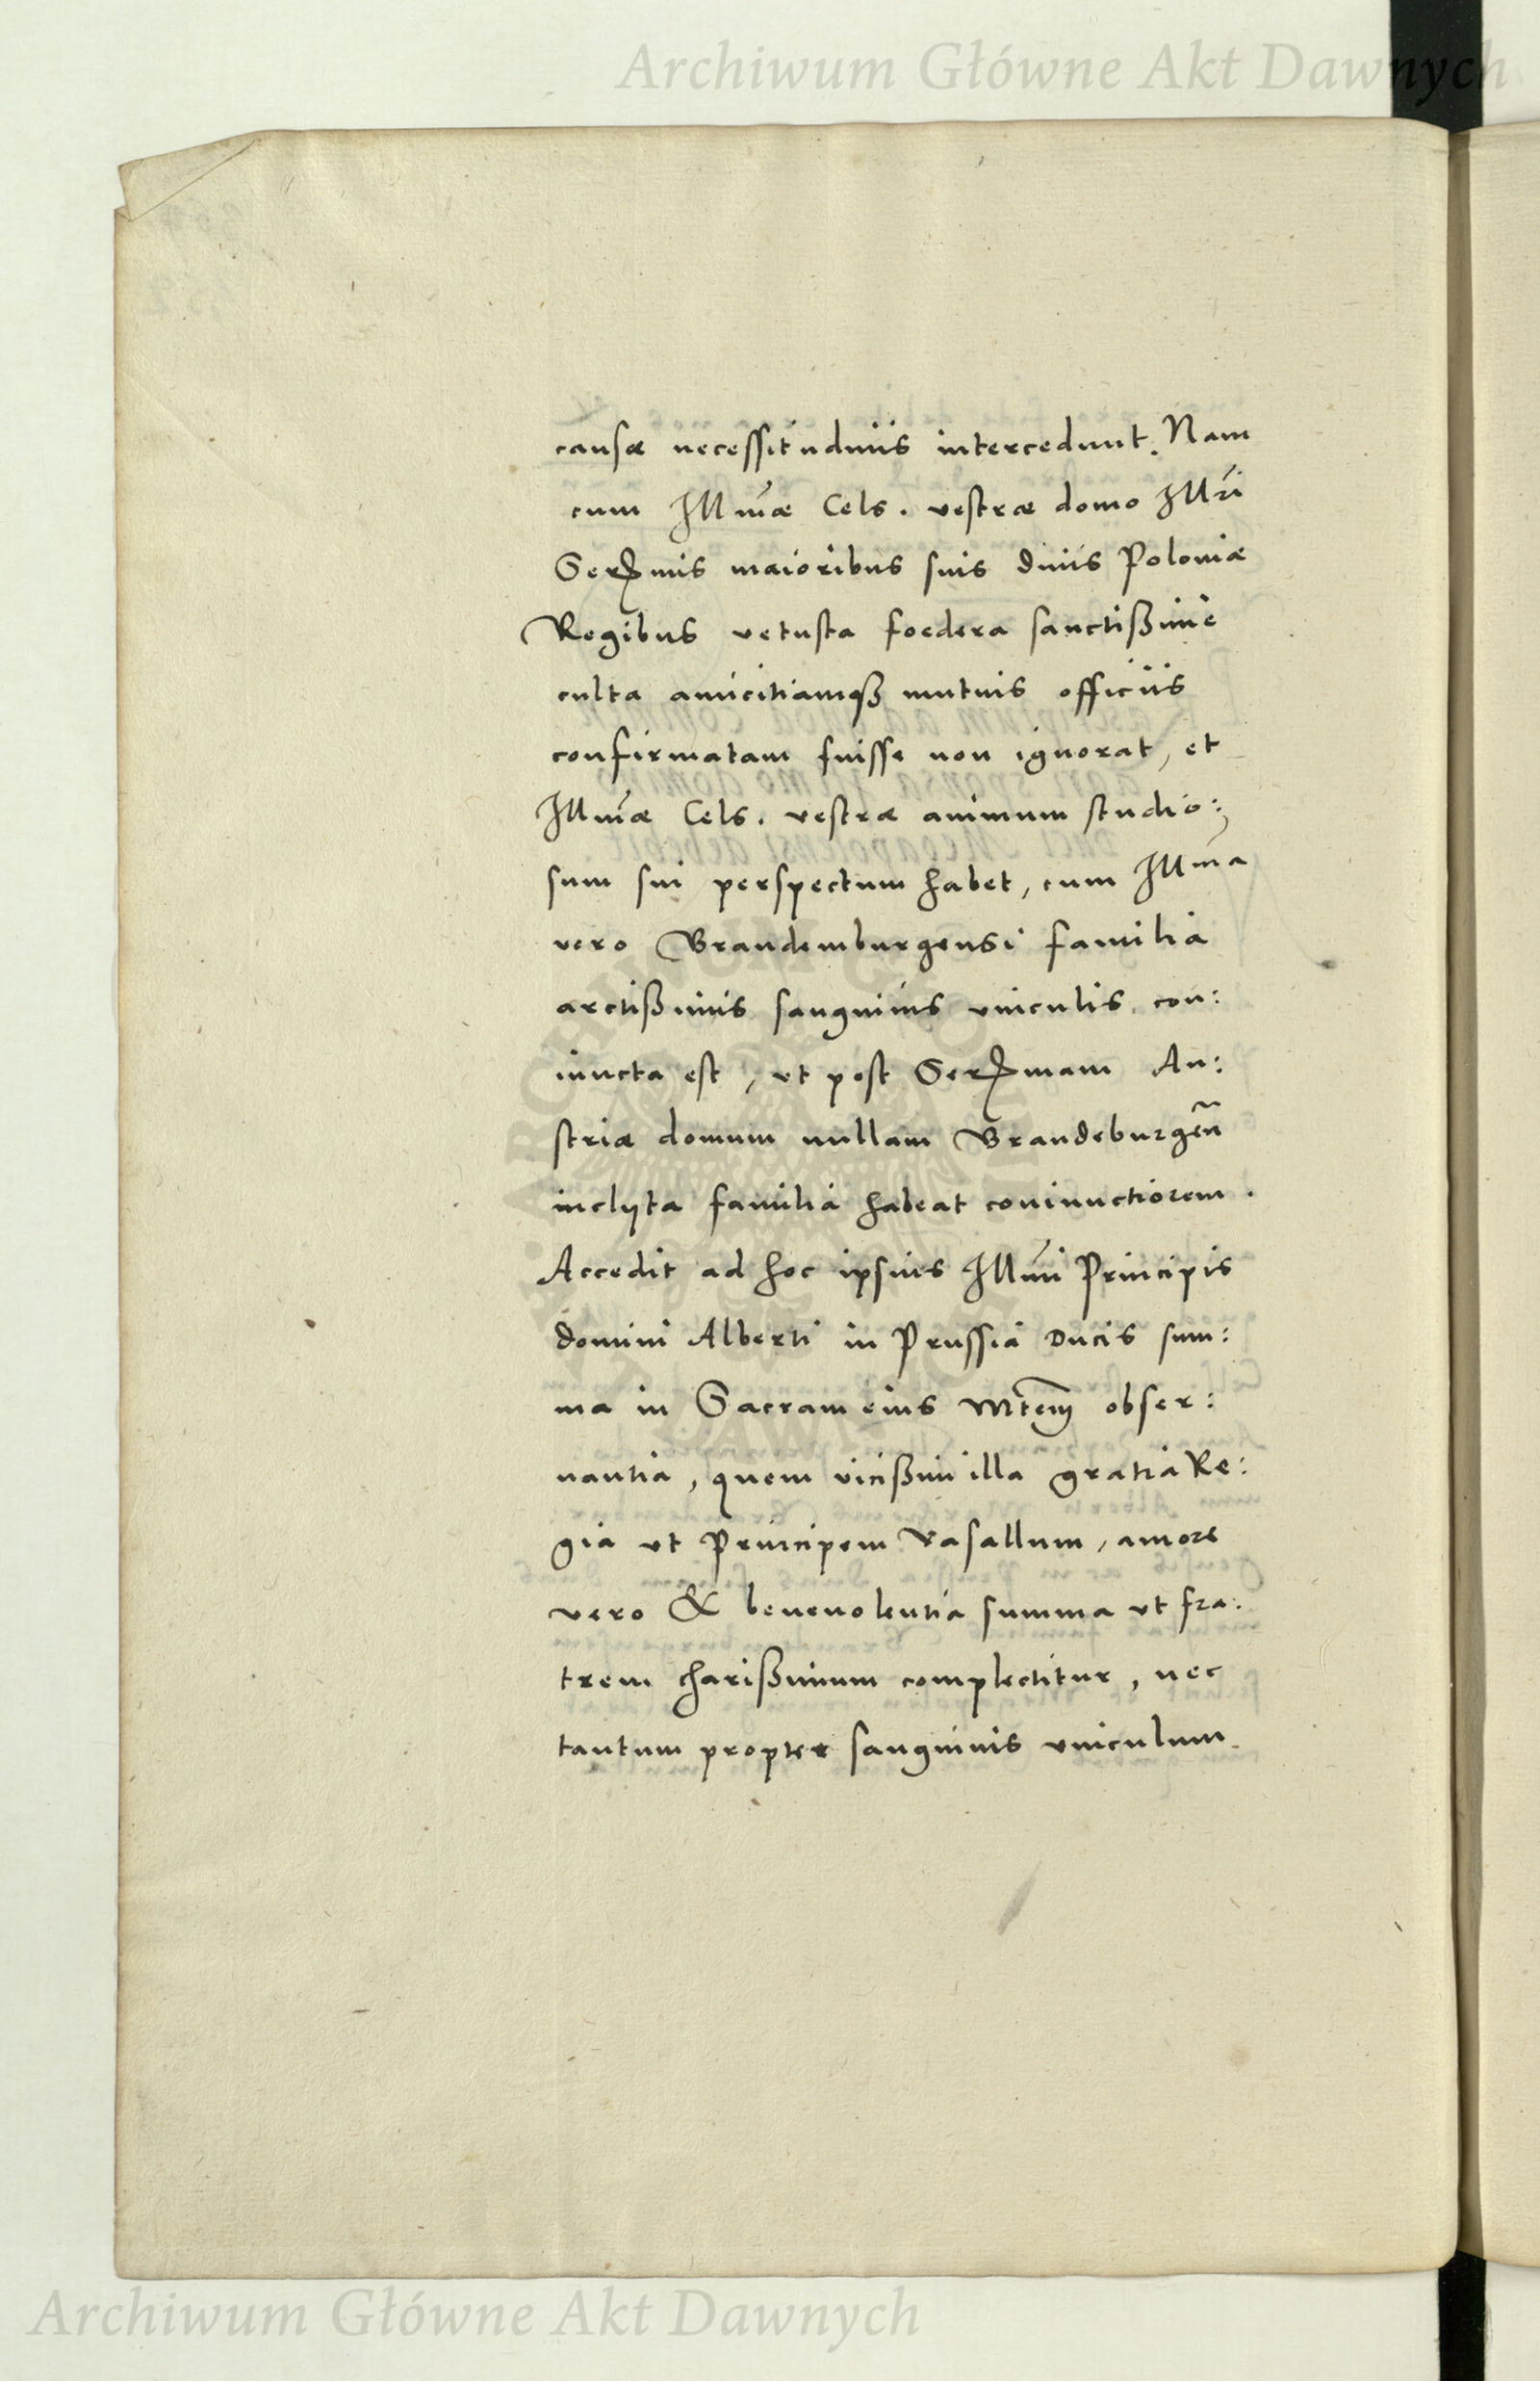 Archiwum Główne Akt Dawnych
causæ necessitudinis intercedunt. Nam
cum Illmæ Cels. vestræ domo Illri
Sermis maioribus suis divis Poloniæ
Regibus vetusta foedera sanctißime
culta amicitiamqꝫ mutuis officiis
confirmatam fuisse non ignorat, et
Illmæ Cels. vestræ animum studio:
sum sui perspectum habet, cum Illma
vero Brandemburgensi familia
arctißimis sanguinis vinculis con:
iuncta est, ut post Sermam Au:
striæ domum nullam Brandeburgen̄
inclyta familia habeat coniunctiorem.
Accedit ad hoc ipsius Illmi Principis
domini Alberti in Prussia Ducis sum:
ma in Sacram eius Mtem obser:
uantia, quem vicißim illa gratia Re:
gia ut Principem Vasallum, amore
vero & benevolentia summa ut fra:
trem charißimum complectitur, nec
tantum propter sanguinis vinculum
Archiwum Główne Akt Dawnych